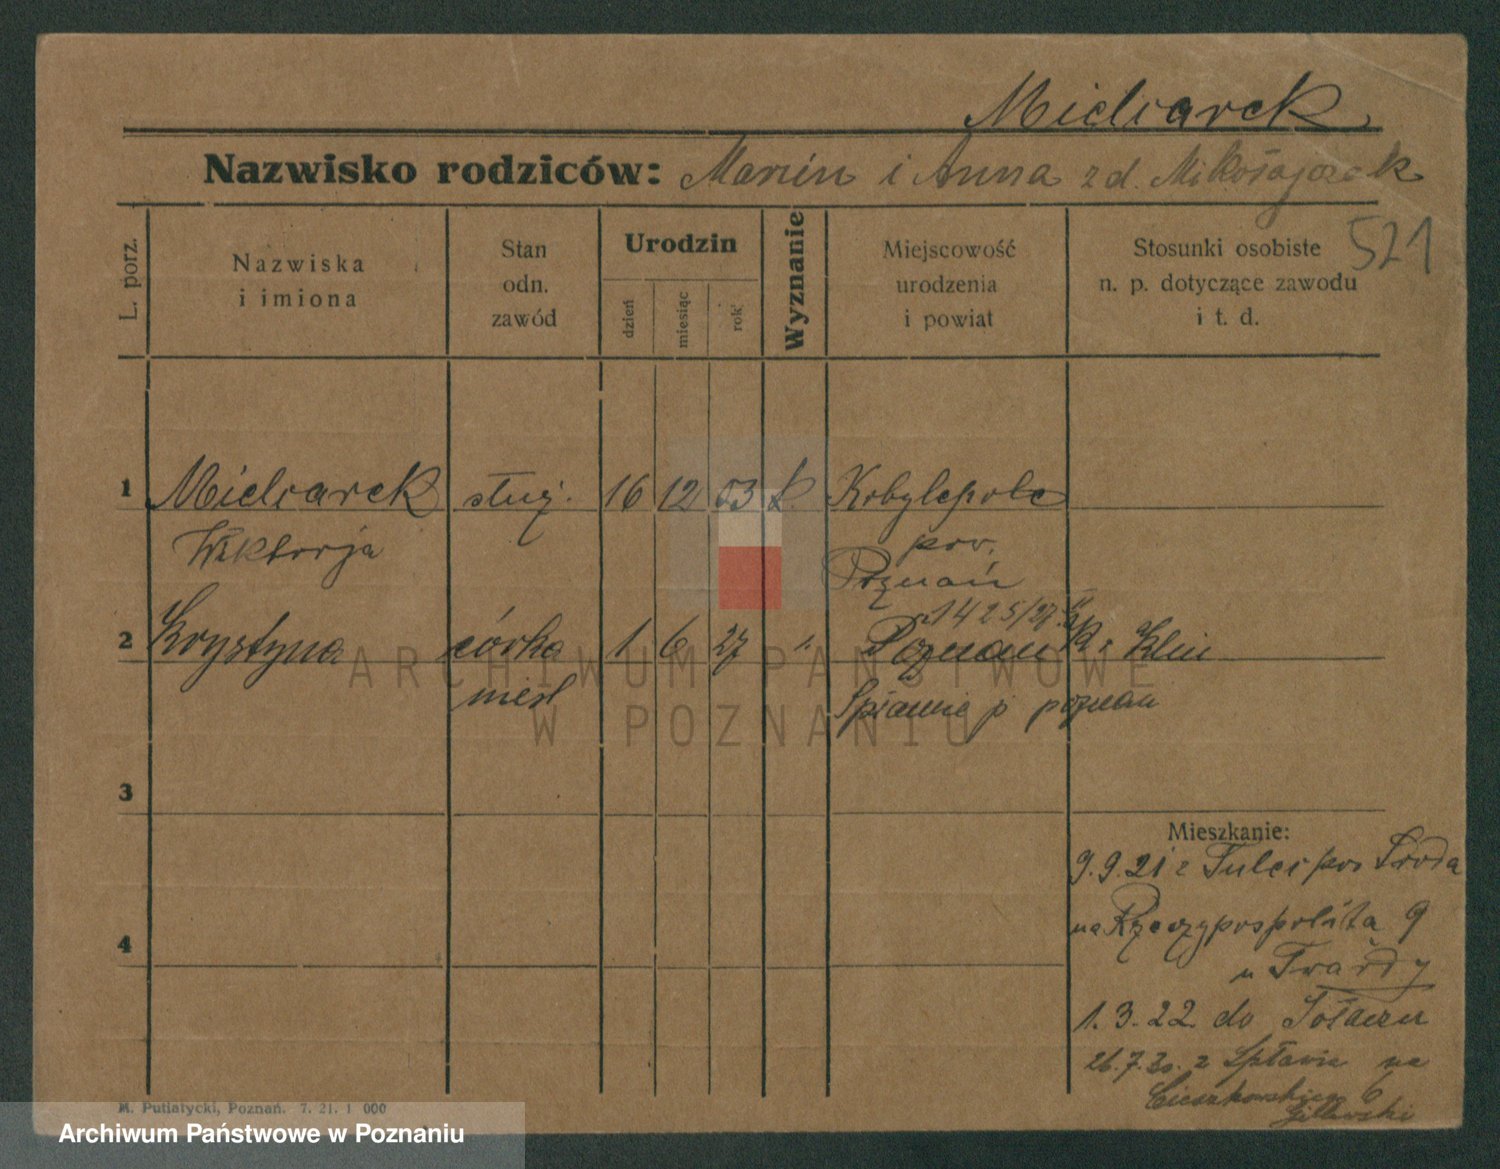 Mielcarek
Nazwisko rodziców: Marcin i Anna z d. Mikołajczak
521
L. porz.
Nazwiska
i imiona
Stan
odn.
zawód
Urodzin
dzień
miesiąc
rok
Wyznanie
Miejscowość
urodzenia
i powiat
Stosunki osobiste
n. p. dotyczące zawodu
i t. d.
1 Mielcarek służ. 16 12 03 k. Kobylepole
Wiktorja pow.
Poznań
1425/27
2 Krystyna córka 1 6 27 Poznań
nieśl
p poznan
ARCHIWUM PAŃSTWOWE
W POZNANIU
3
Mieszkanie:
9.9.21 z Tulec pow Środa
na Rzeczypospolita 9
4
u Twardy
1.3.22 do Sołacza
26.7.30. z Spławia na
Cieszkowskiego 6
M. Putiatycki, Poznań. 7. 21. 1 000
Archiwum Państwowe w Poznaniu